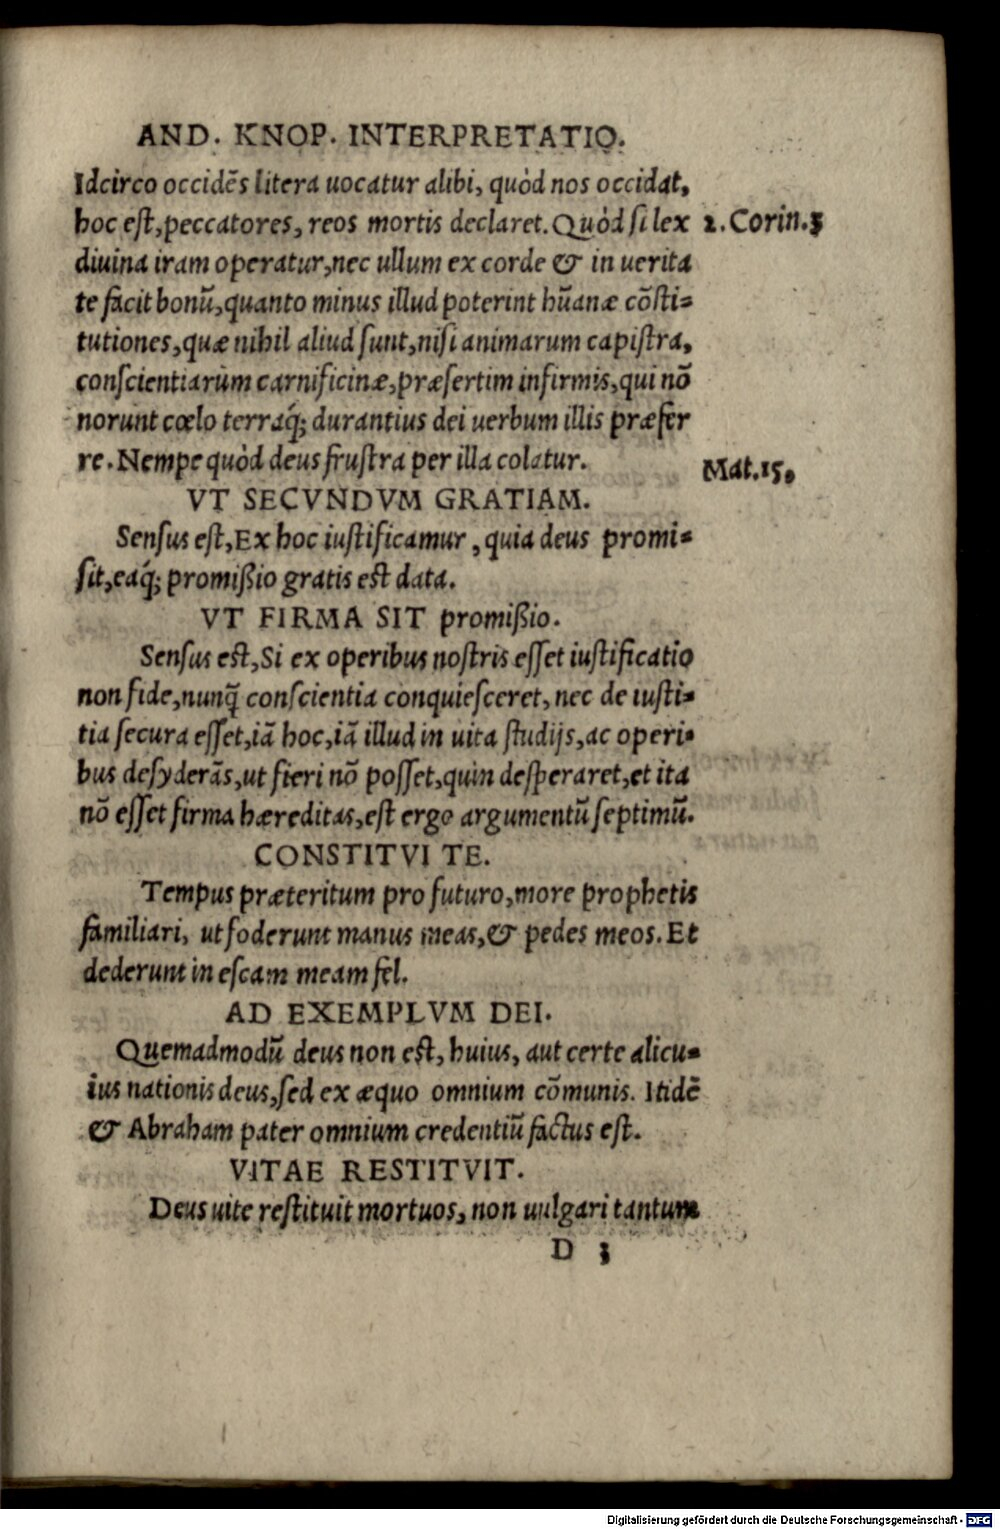 AND. KNOP. INTERPRETATIO.
Idcirco occidẽs litera uocatur alibi, quòd nos occidat,
hoc est, peccatores, reos mortis declaret. Quòd si lex
2. Corin. 3
diuina iram operatur, nec ullum ex corde & in uerita
te facit bonũ, quanto minus illud poterint hũanæ cõsti-
tutiones, quæ nihil aliud sunt, nisi animarum capistra,
conscientiarum carnificinæ, præsertim infirmis, qui nõ
norunt cœlo terraq́; durantius dei uerbum illis præfer
re. Nempe quòd deus frustra per illa colatur.
Mat. 15.
VT SECVNDVM GRATIAM.
Sensus est, Ex hoc iustificamur, quia deus promi-
sit, eaq́; promißio gratis est data.
VT FIRMA SIT promißio.
Sensus est, Si ex operibus nostris esset iustificatio
non fide, nunq̃ conscientia conquiesceret, nec de iusti-
tia secura esset, iã hoc, iã illud in uita studijs, ac operi-
bus desyderãs, ut fieri nõ posset, quin desperaret, et ita
nõ esset firma hæreditas, est ergo argumentũ septimũ.
CONSTITVI TE.
Tempus præteritum pro futuro, more prophetis
familiari, ut foderunt manus meas, & pedes meos. Et
dederunt in escam meam fel.
AD EXEMPLVM DEI.
Quemadmodũ deus non est, huius, aut certe alicu-
ius nationis deus, sed ex æquo omnium cõmunis. Itidẽ
& Abraham pater omnium credentiũ factus est.
VITAE RESTITVIT.
Deus uite restituit mortuos, non uulgari tantum
D 3
Digitalisierung gefördert durch die Deutsche Forschungsgemeinschaft - DFG